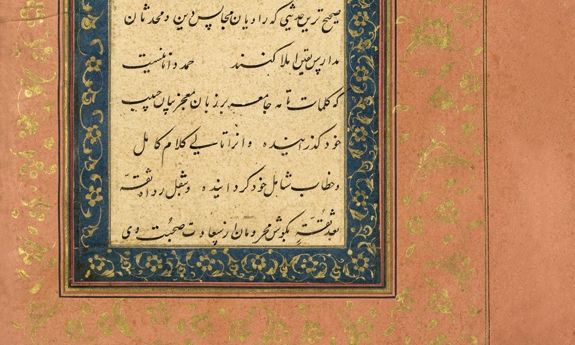 صحیح ترین حدیثی که راویان مجالس دین و محدثان
مدارس یقین املا کنند حمد دانائیست
که کلمات تامه جامعه بر زبان معجز بیان حبیب
خود گذرانیده و انرا تالی کلام کامل
و خطاب شامل خود گردانیده و بنقل رواه ثقة
بعد ثقة بگوش محرومان از سعادت صحبت وی